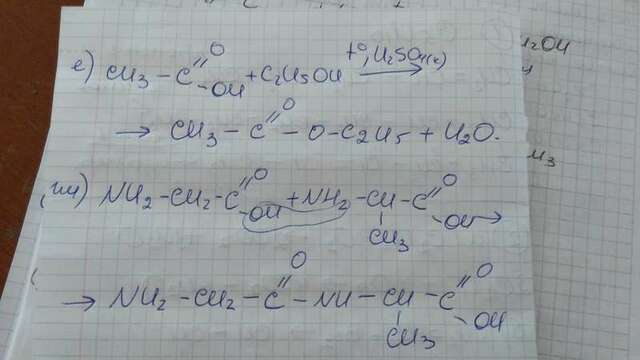 е) CH3 - C (=O) - OH + C2H5OH t°, H2SO4(к) →
→ CH3 - C (=O) - O - C2H5 + H2O.
NH2 - CH2 - C (=O) - OH + NH2 - CH (CH3) - C (=O) - OH →
→ NH2 - CH2 - C (=O) - NH - CH (CH3) - C (=O) - OH